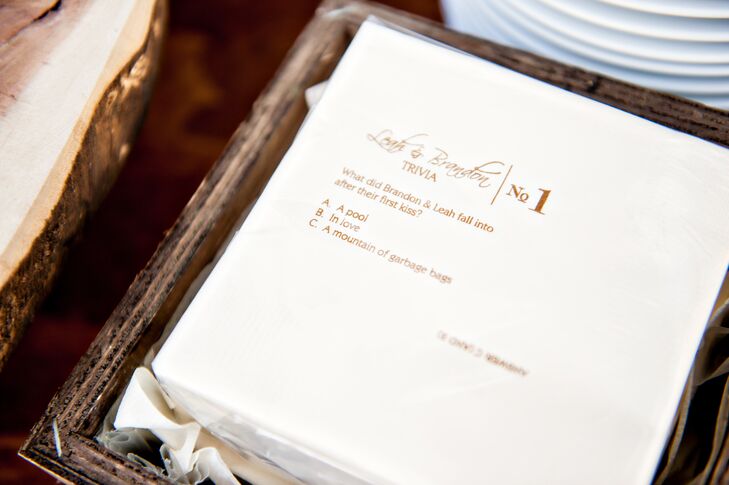 Leah & Brandon
TRIVIA
No 1
What did Brandon & Leah fall into
after their first kiss?
A. A pool
B. In love
C. A mountain of garbage bags
ANSWER: C (AND B)